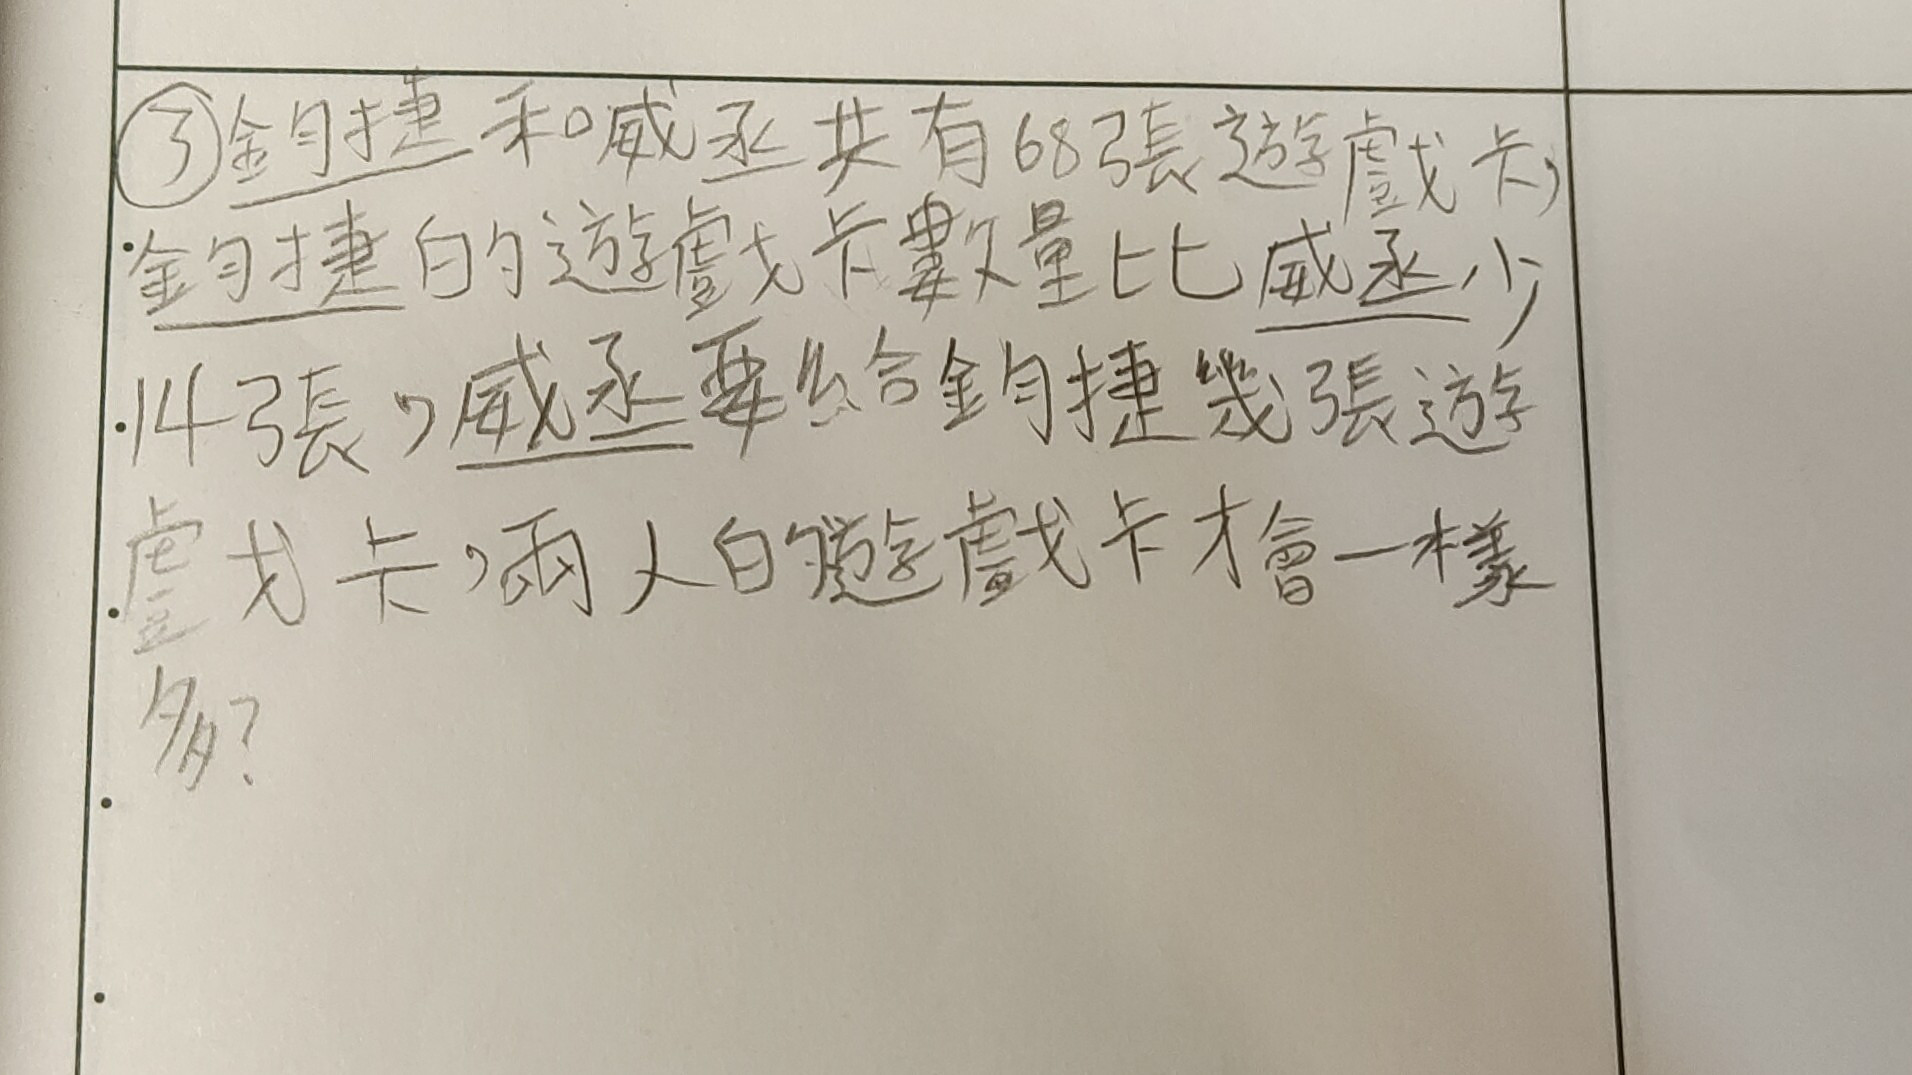 ③鈞捷和威丞共有68張遊戲卡,
鈞捷的遊戲卡數量比威丞少
14張,威丞要給鈞捷幾張遊
戲卡,兩人的遊戲卡才會一樣
多?